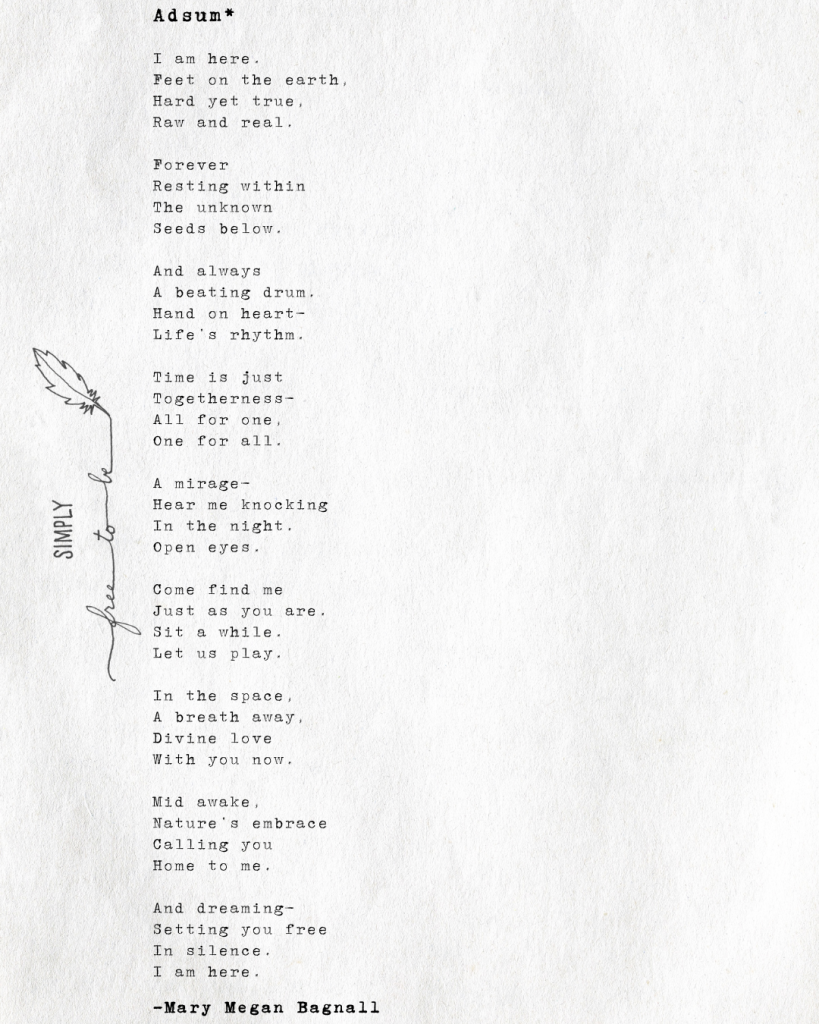 Adsum*
I am here.
Feet on the earth,
Hard yet true,
Raw and real.
Forever
Resting within
The unknown
Seeds below.
And always
A beating drum.
Hand on heart-
Life's rhythm.
Time is just
Togetherness-
All for one,
One for all.
A mirage-
Hear me knocking
In the night.
Open eyes.
Come find me
Just as you are.
Sit a while.
Let us play.
In the space,
A breath away,
Divine love
With you now.
Mid awake,
Nature's embrace
Calling you
Home to me.
And dreaming-
Setting you free
In silence.
I am here.
-Mary Megan Bagnall
SIMPLY
free to be